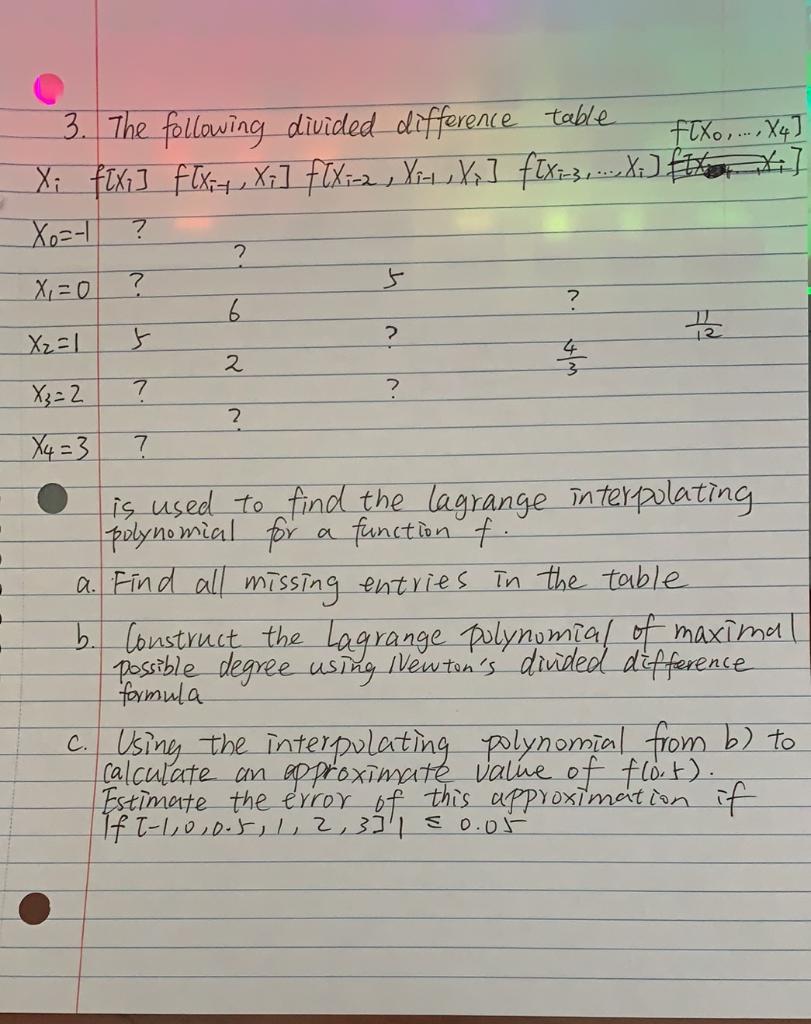 3. The following divided difference table
f[x0,...,x4]
xi f[xi] f[xi-1, xi] f[xi-2, xi-1, xi] f[xi-3,...,xi]
x0=-1 ?
?
x1=0 ? 5
6 ?
x2=1 5 ? 11/12
2 4/3
x3=2 ? ?
?
x4=3 ?
is used to find the lagrange interpolating
polynomial for a function f.
a. Find all missing entries in the table
b. Construct the Lagrange polynomial of maximal
possible degree using Newton's divided difference
formula
c. Using the interpolating polynomial from b) to
calculate an approximate value of f(0.5).
Estimate the error of this approximation if
|f[-1,0,0.5,1,2,3]| ≤ 0.05